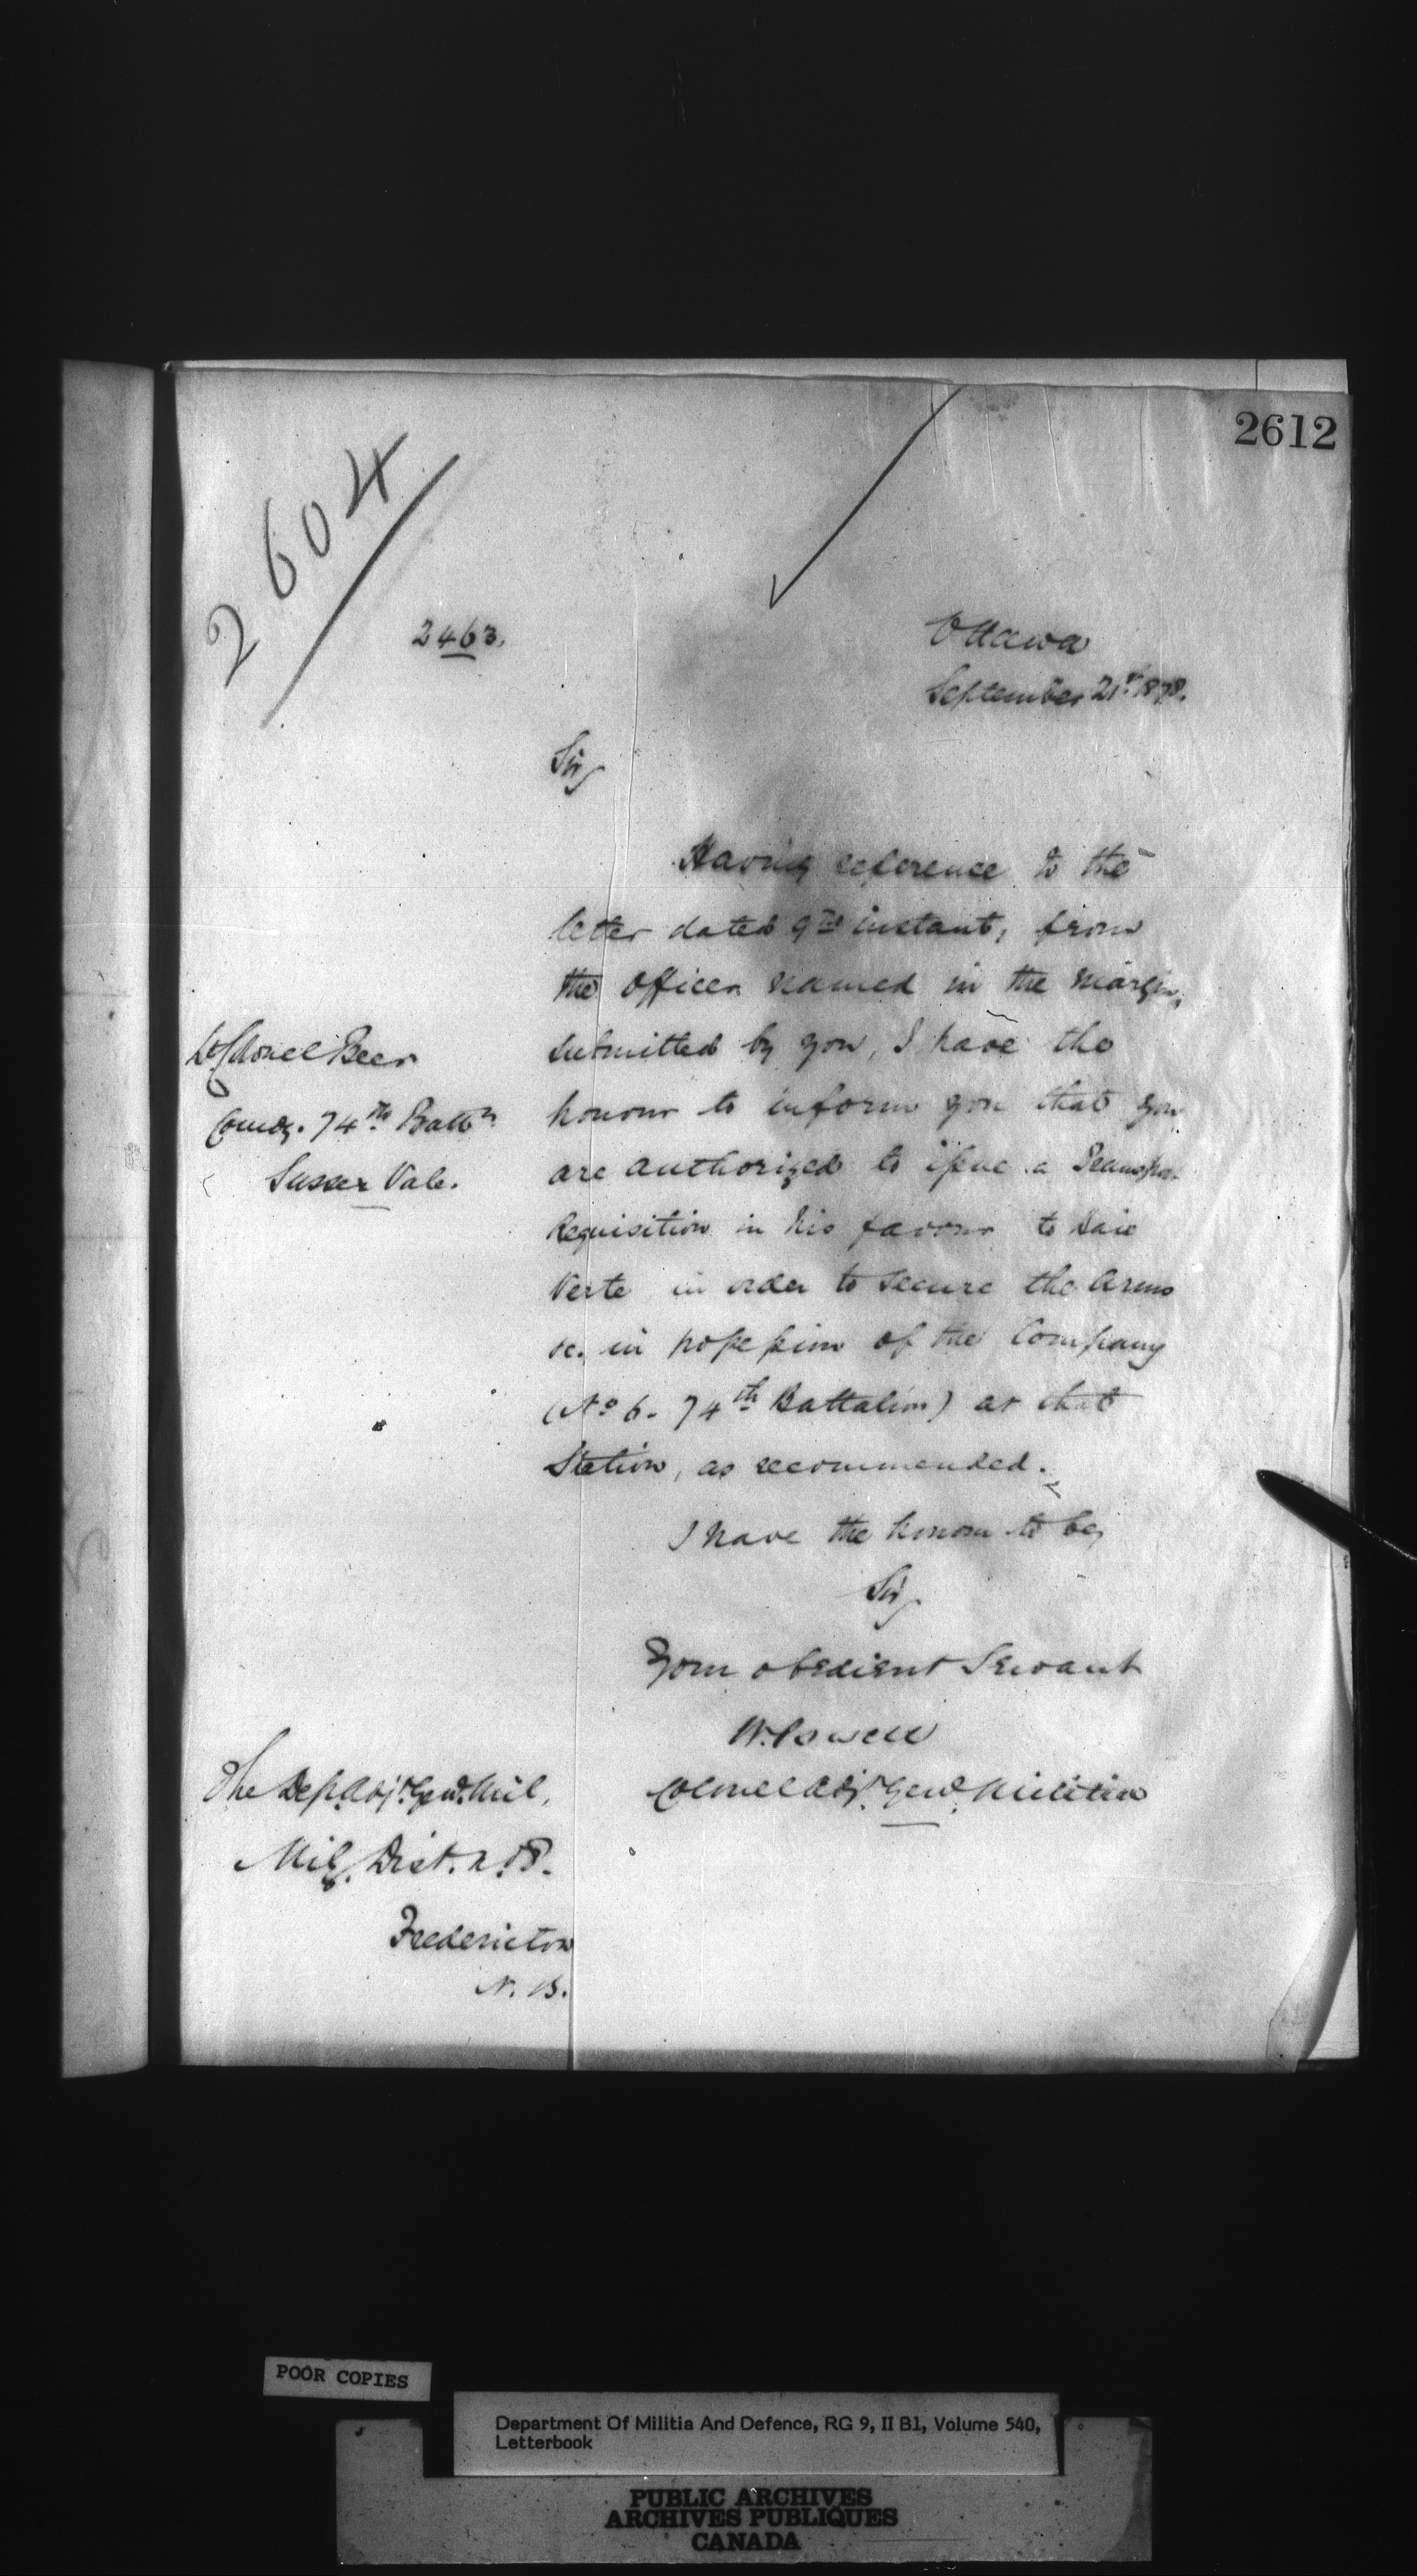 2612
2604
2463.
Ottawa
September 21st 1878.
Sir,
Having reference to the
letter dated 9th instant, from
the officer named in the margin,
submitted by you, I have the
honour to inform you that you
are authorized to issue a
Requisition in his favour to Baie
Verte in order to secure the Arms
&c. in possession of the Company
(No 6. 74th Battalion) at that
Station, as recommended.
Lt Colonel Beer
Comdg. 74th Battn
Sussex Vale.
I have the honour to be,
Sir,
Your obedient Servant
W. Powell
Colonel Adjt. Genl. Militia
The Dep. Adjt. Genl. Mil,
Mily. Dist. No. 8.
Fredericton
N. B.
POOR COPIES
Department Of Militia And Defence, RG 9, II B1, Volume 540,
Letterbook
PUBLIC ARCHIVES
ARCHIVES PUBLIQUES
CANADA